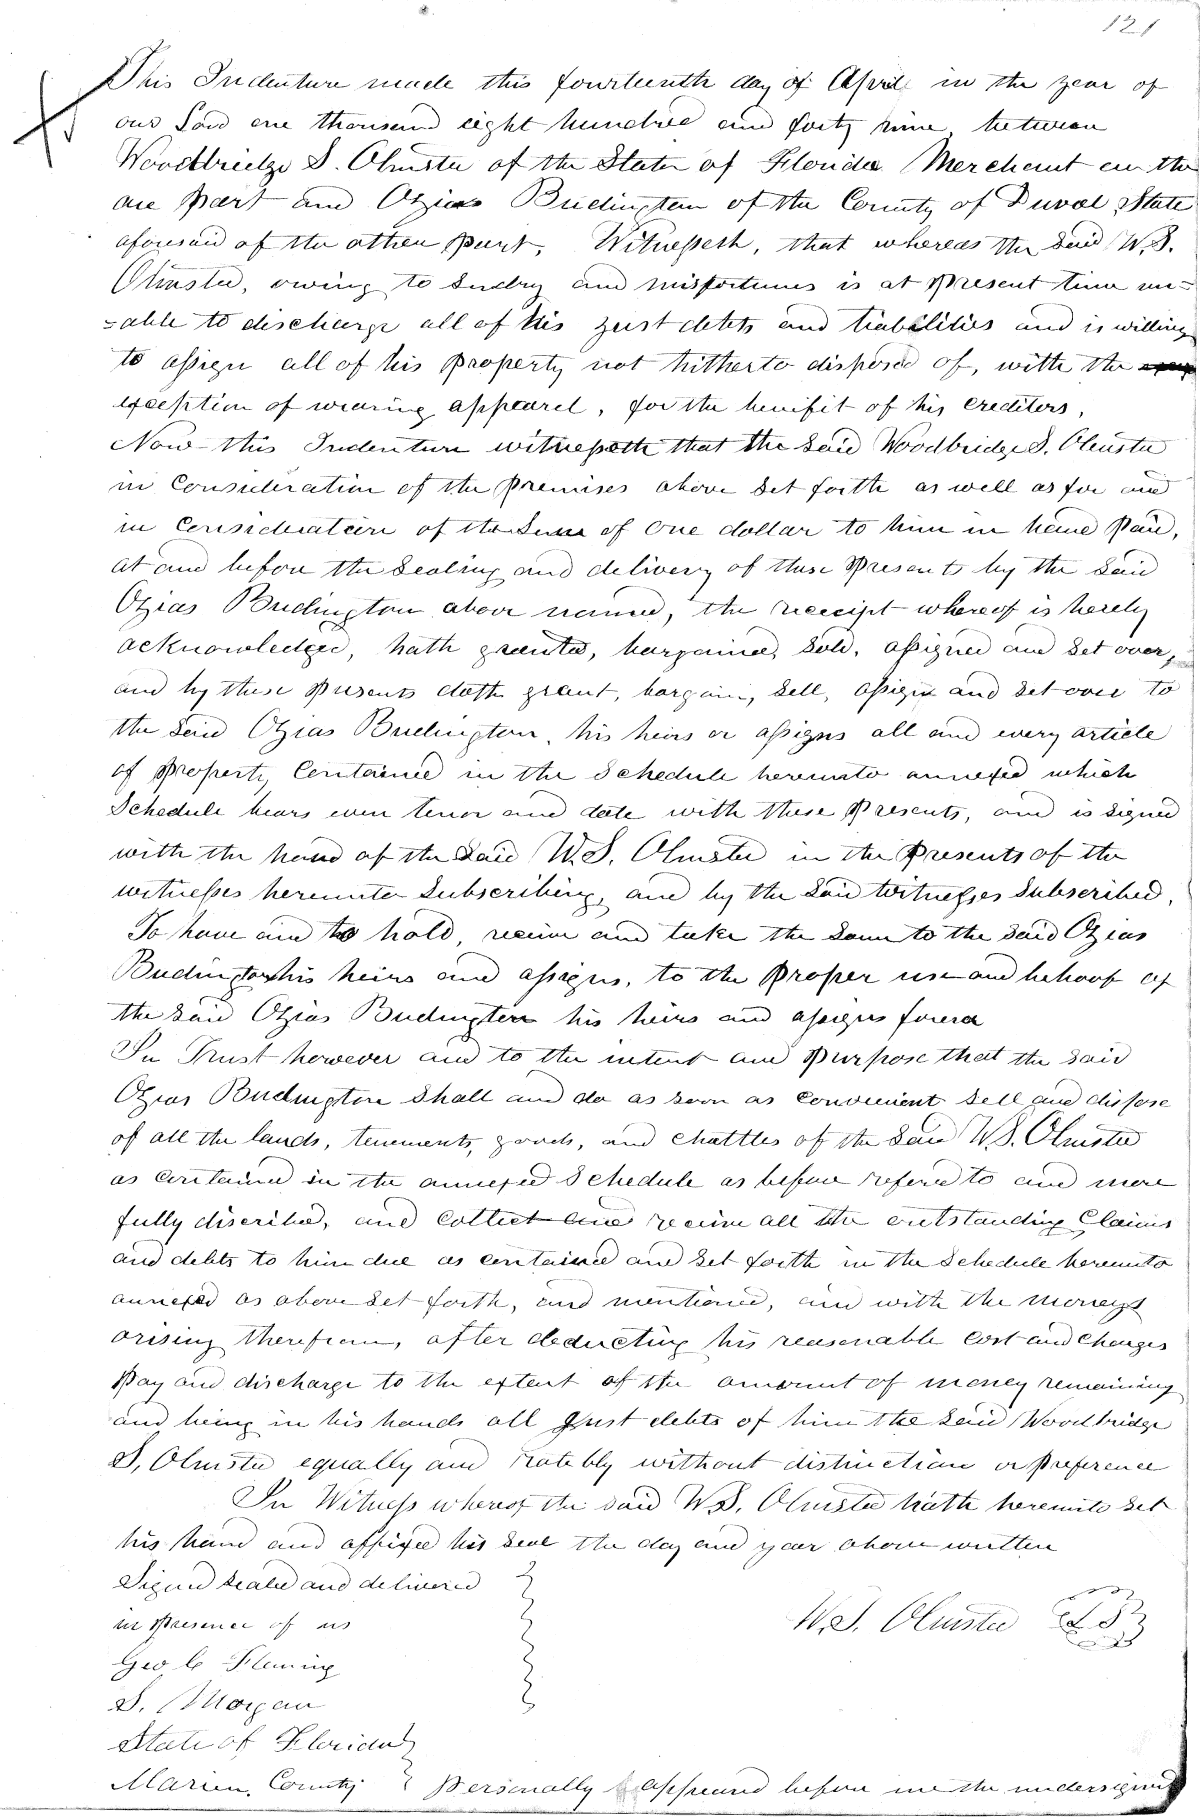 121
This Indenture made this fourteenth day of April in the year of
our Lord one thousand eight hundred and forty nine, between
Woodbridge S. Olmsted of the State of Florida Merchant on the
one Part and Ozias Budington of the County of Duval, State
aforesaid of the other part, Witnesseth, that whereas the said W.S.
Olmsted, owing to sudry and misfortunes is at present time un=
=able to discharge all of his just debts and liabilities and is willing
to assign all of his property not hitherto disposed of, with the
exception of wearing apparel, for the benifit of his creditors,
Now this Indenture witnesseth that the said Woodbridge S. Olmsted
in Consideration of the premises above set forth as well as for and
in Consideration of the sum of one dollar to him in hand Paid,
at and before the sealing and delivery of these Presents by the said
Ozias Budington above named, the receipt whereof is hereby
acknowledged, hath granted, bargained, sold, assigned and set over,
and by these presents doth grant, bargain, sell, assign and set over to
the said Ozias Budington, his heirs or assigns all and every article
of property Contained in the schedule hereunto annexed which
Schedule bears even tenor and date with these Presents, and is signed
with the hand of the said W.S. Olmsted in the Presents of the
witnesses hereunto subscribing, and by the said witnesses subscribed,
To have and to hold, receive and take the same to the said Ozias
Budington his heirs and assigns, to the Proper use and behoof of
the said Ozias Budington his heirs and assigns forever
In Trust however and to the intent and Purpose that the said
Ozias Budington shall and do as soon as convenient sell and dispose
of all the lands, tenements, goods, and chattles of the said W.S. Olmsted
as contained in the annexed Schedule as before refered to and more
fully discribed, and collect and receive all the outstanding Claims
and debts to him due as contained and set forth in the Schedule hereunto
annexed as above set forth, and mentioned, and with the moneys
arising therefrom, after deducting his reasonable cost and charges
Pay and discharge to the extent of the amount of money remaining
and being in his hands all just debts of him the said Woodbridge
S, Olmsted equally and ratebly without distinction or preference
In Witness whereof the said W.S. Olmsted hath hereunto set
his hand and affixed his seal the day and year above written
Signed sealed and delivered
in presence of us
W.S. Olmsted L.S.
Geo. C Fleming
S. Morgan
State of Florida
Marion County Personally appeared before me the undersigned